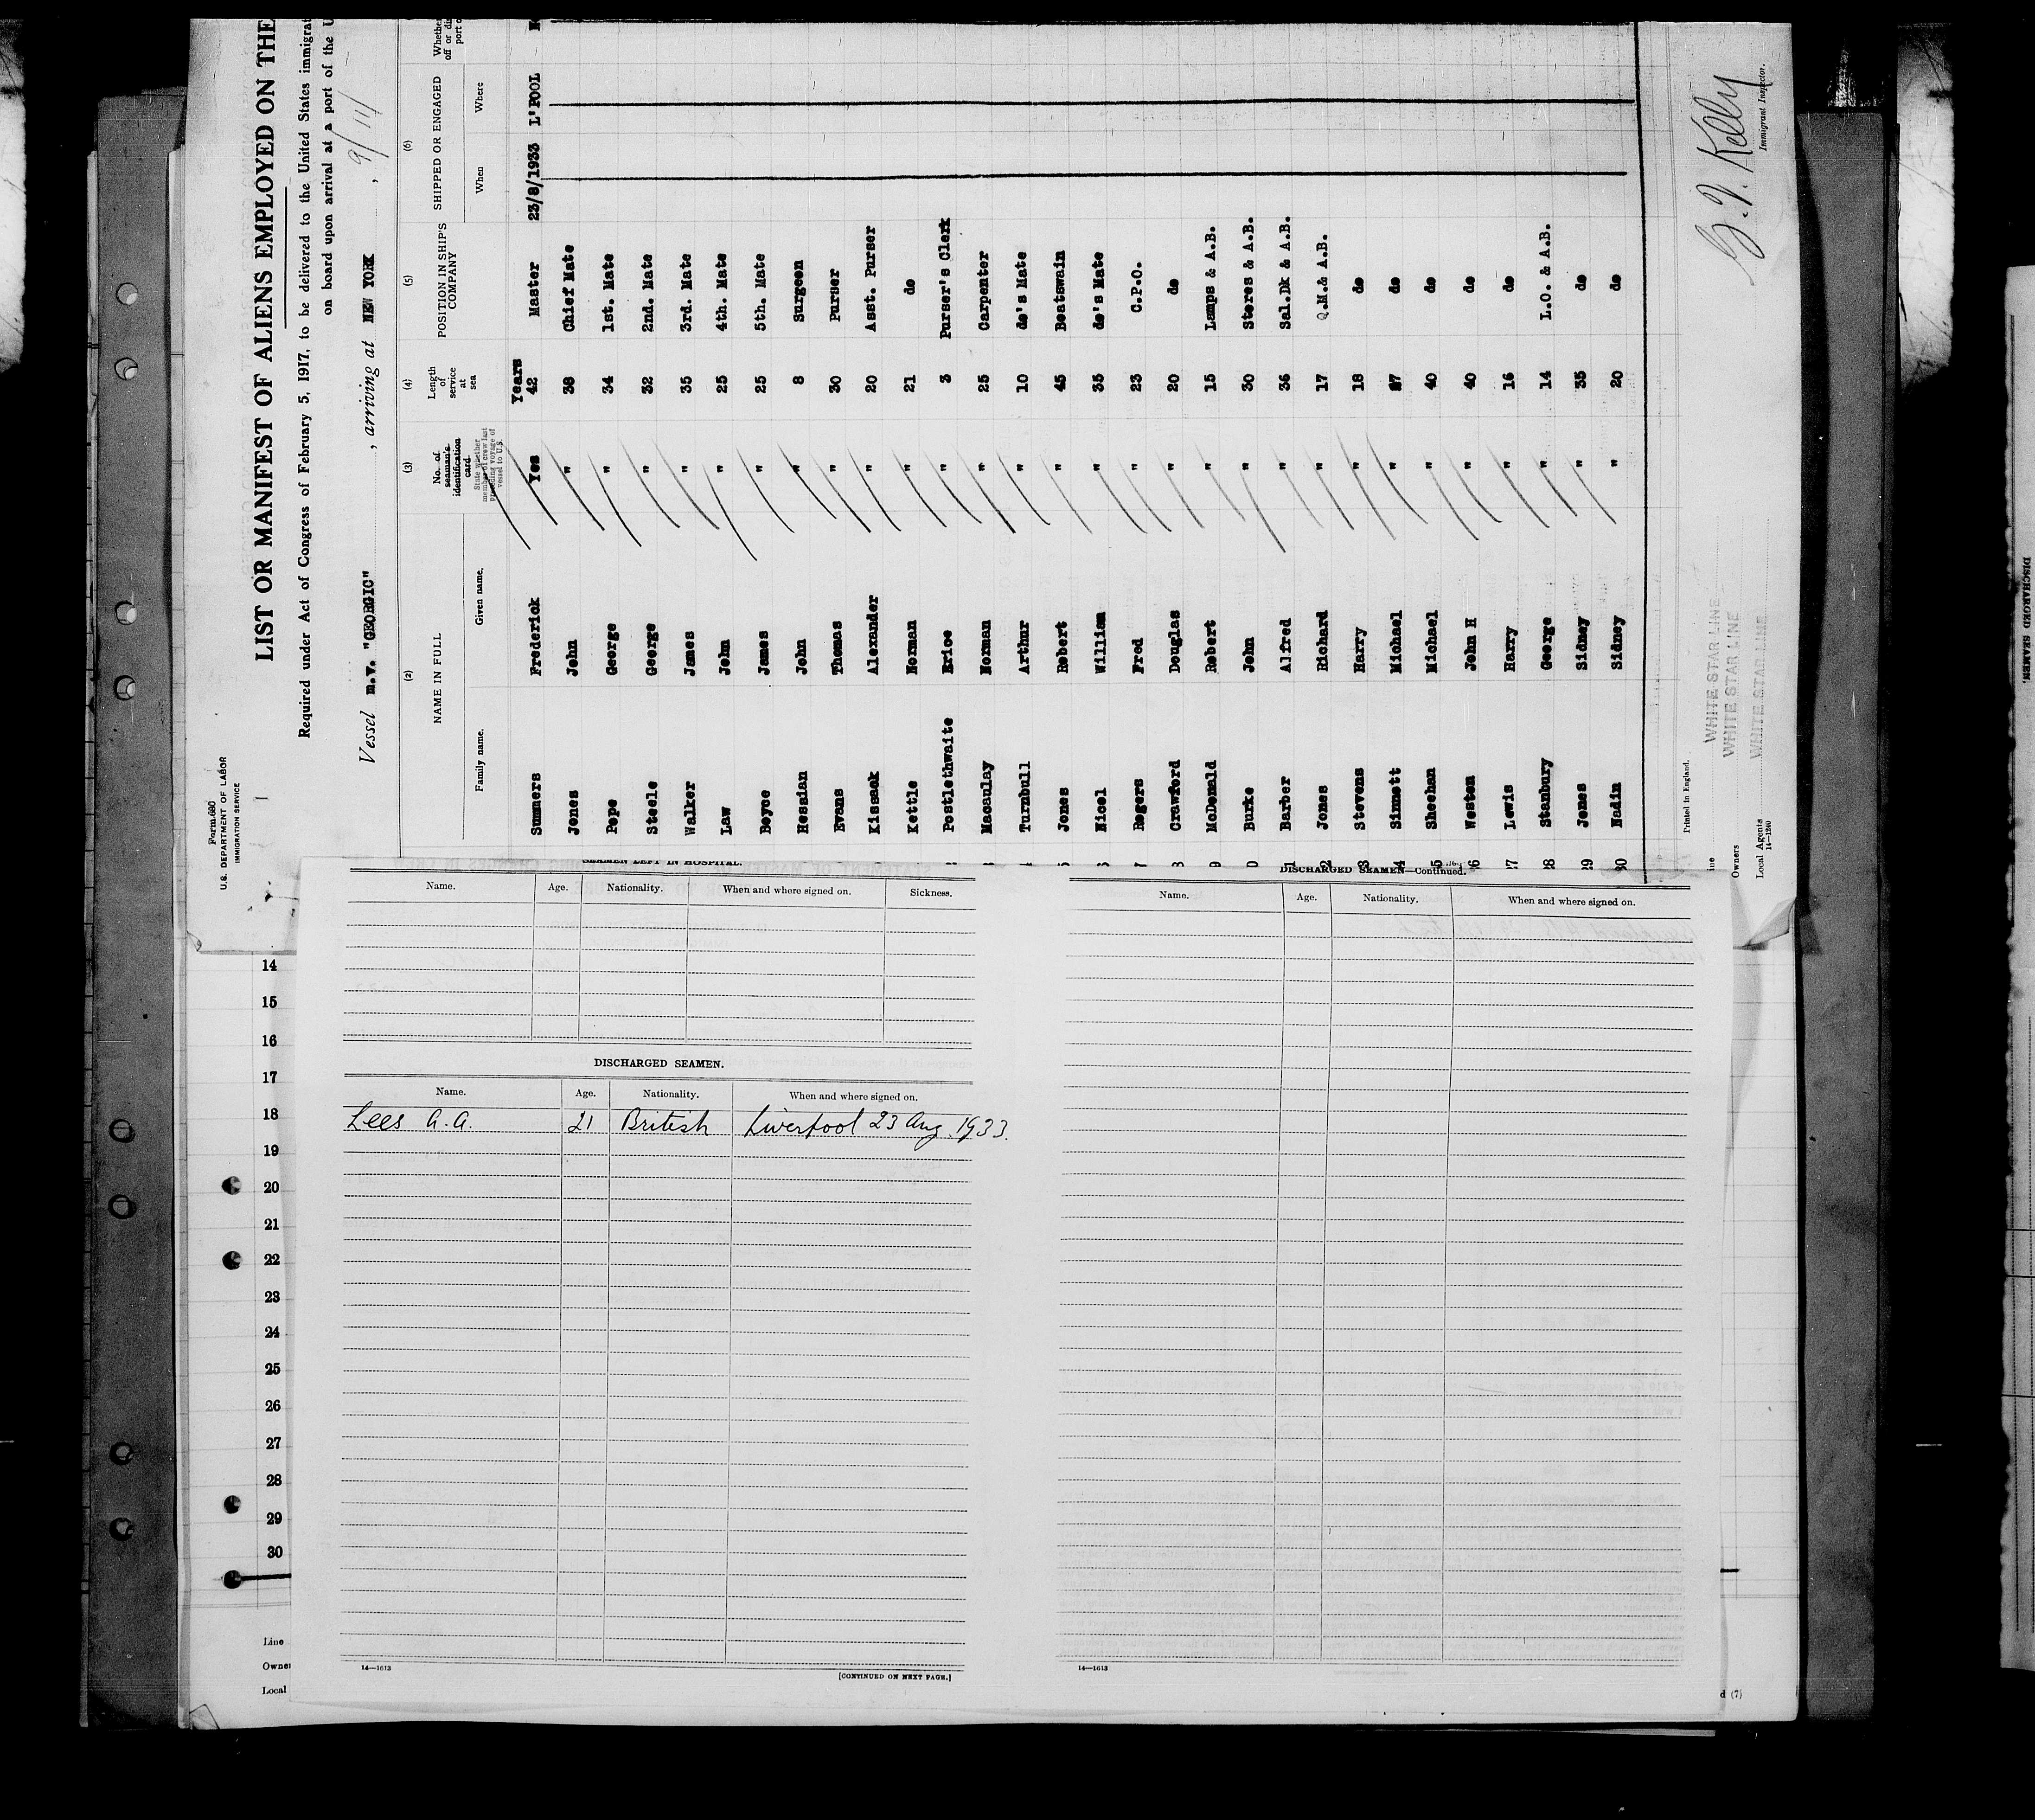 Form 680
U.S. DEPARTMENT OF LABOR
IMMIGRATION SERVICE
LIST OR MANIFEST OF ALIENS EMPLOYED ON THE
Required under Act of Congress of February 5, 1917, to be delivered to the United States immigra
on board upon arrival at a port of the U
Vessel m.v. "GEORGIC" , arriving at NEW YORK , 9/11/
(2) (3) (4) (5) (6)
NAME IN FULL No. of seaman's identification card. Length of service at sea POSITION IN SHIP'S COMPANY SHIPPED OR ENGAGED
State whether member of crew last preceding voyage of vessel to U.S.
Family name. Given name. When Where
Years
Summers Frederick Yes 42 Master 23/8/1933 L'POOL
Jones John " 38 Chief Mate
Pope George " 34 1st. Mate
Steele George " 32 2nd. Mate
Walker James " 35 3rd. Mate
Law John " 25 4th. Mate
Boyce James " 25 5th. Mate
Hessian John " 8 Surgeon
Evans Thomas " 30 Purser
Kissack Alexander " 20 Asst. Purser
Kettle Norman " 21 do
Postlethwaite Brice " 3 Purser's Clerk
Macaulay Norman " 25 Carpenter
Turnbull Arthur " 10 do's Mate
5 Jones Robert " 45 Boatswain
6 Nicol William " 35 do's Mate
7 Rogers Fred " 23 C.P.O.
8 Crawford Douglas " 20 do
9 McDonald Robert " 15 Lamps & A.B.
0 Burke John " 30 Stores & A.B.
1 Barber Alfred " 36 Sal.Dk & A.B.
2 Jones Richard " 17 Q.M.& A.B.
3 Stevens Harry " 18 do
4 Sinnott Michael " 27 do
5 Sheehan Michael " 40 do
6 Weston John H " 40 do
27 Lewis Harry " 16 do
28 Stanbury George " 14 L.O. & A.B.
29 Jones Sidney " 35 do
30 Nadin Sidney " 20 do
Printed in England.
ine WHITE STAR LINE
Owners WHITE STAR LINE
Local Agents WHITE STAR LINE
14—1240
Kelly
Immigrant Inspector.
SEAMEN LEFT IN HOSPITAL.
Name. Age. Nationality. When and where signed on. Sickness.
DISCHARGED SEAMEN.
Name. Age. Nationality. When and where signed on.
Lees A.A. 21 British Liverpool 23 Aug. 1933.
14—1613
[CONTINUED ON NEXT PAGE.]
DISCHARGED SEAMEN—Continued.
Name. Age. Nationality. When and where signed on.
14—1613
14
15
16
17
18
19
20
21
22
23
24
25
26
27
28
29
30
Line
Owner
Local
d (7)
DISCHARGED SEAMEN.